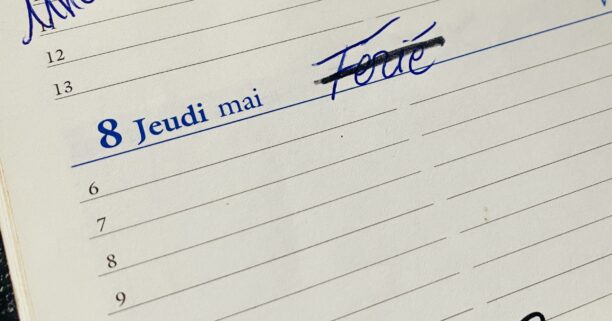 12
13
Férié
8 Jeudi mai
6
7
8
9